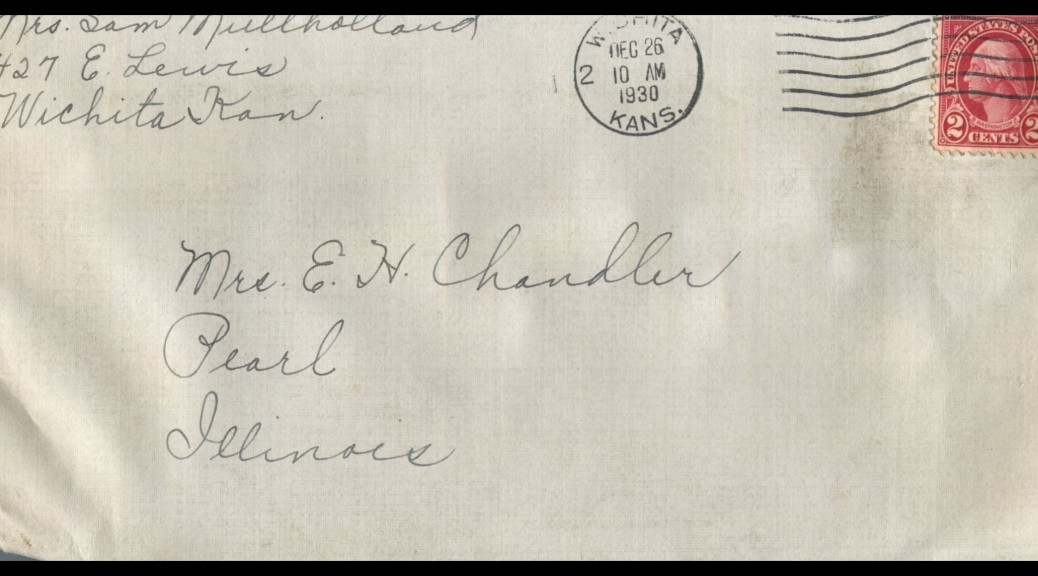 Mrs. Sam Mullholland
427 E. Lewis
Wichita Kan.
WICHITA
DEC 26
2 10 AM
1930
KANS.
UNITED STATES POS
2 CENTS 2
Mrs. E. H. Chandler
Pearl
Illinois